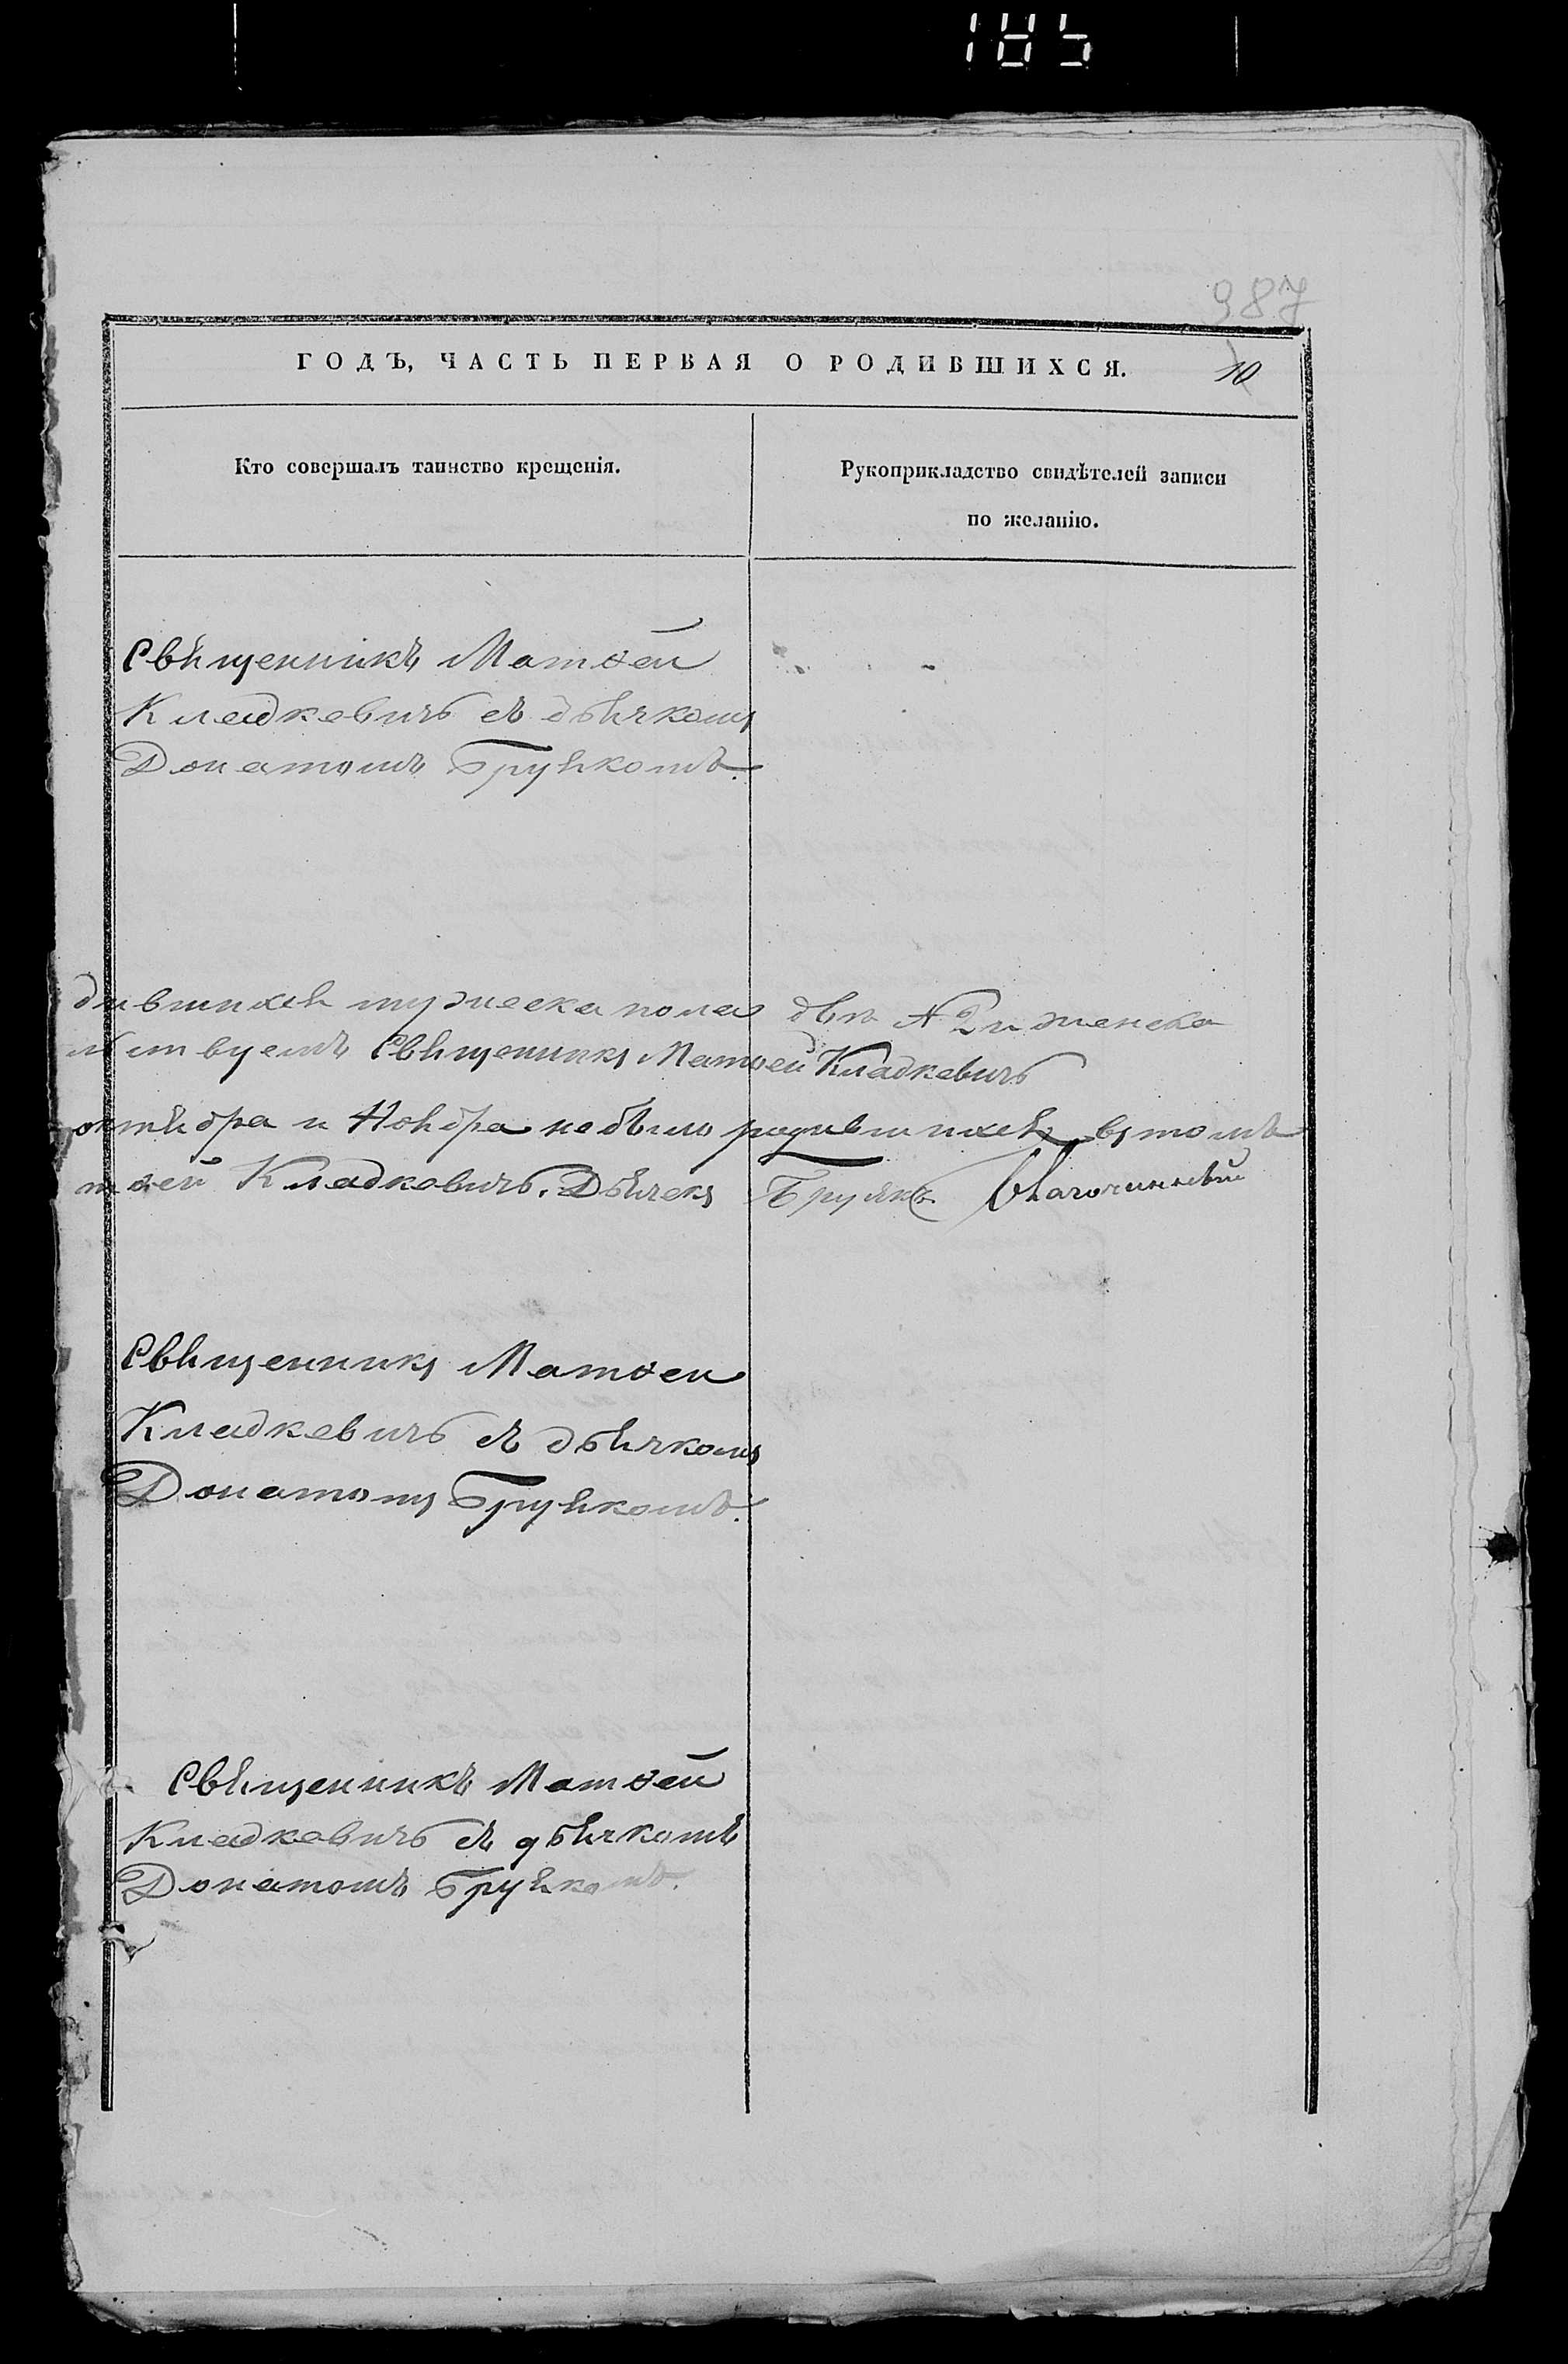 185
987
ГОДЪ, ЧАСТЬ ПЕРВАЯ О РОДИВШИХСЯ. 10
Кто совершалъ таинство крещенія.
Рукоприкладство свидѣтелей записи
по желанію.
Священникъ Матѳей
Кладкевичъ съ дьячкомъ
Донатомъ Бруякомъ.
дившихся мужеска пола два № 2 и женска
Священникъ Матѳей Кладкевичъ
октября и Ноября не было родившихся въ томъ
тѳей Кладкевичъ. Дьячекъ Бруякъ Благочинный
Священникъ Матѳей
Кладкевичъ съ дьячкомъ
Донатомъ Бруякомъ.
Священникъ Матѳей
Кладкевичъ съ дьячкомъ
Донатомъ Бруякомъ.